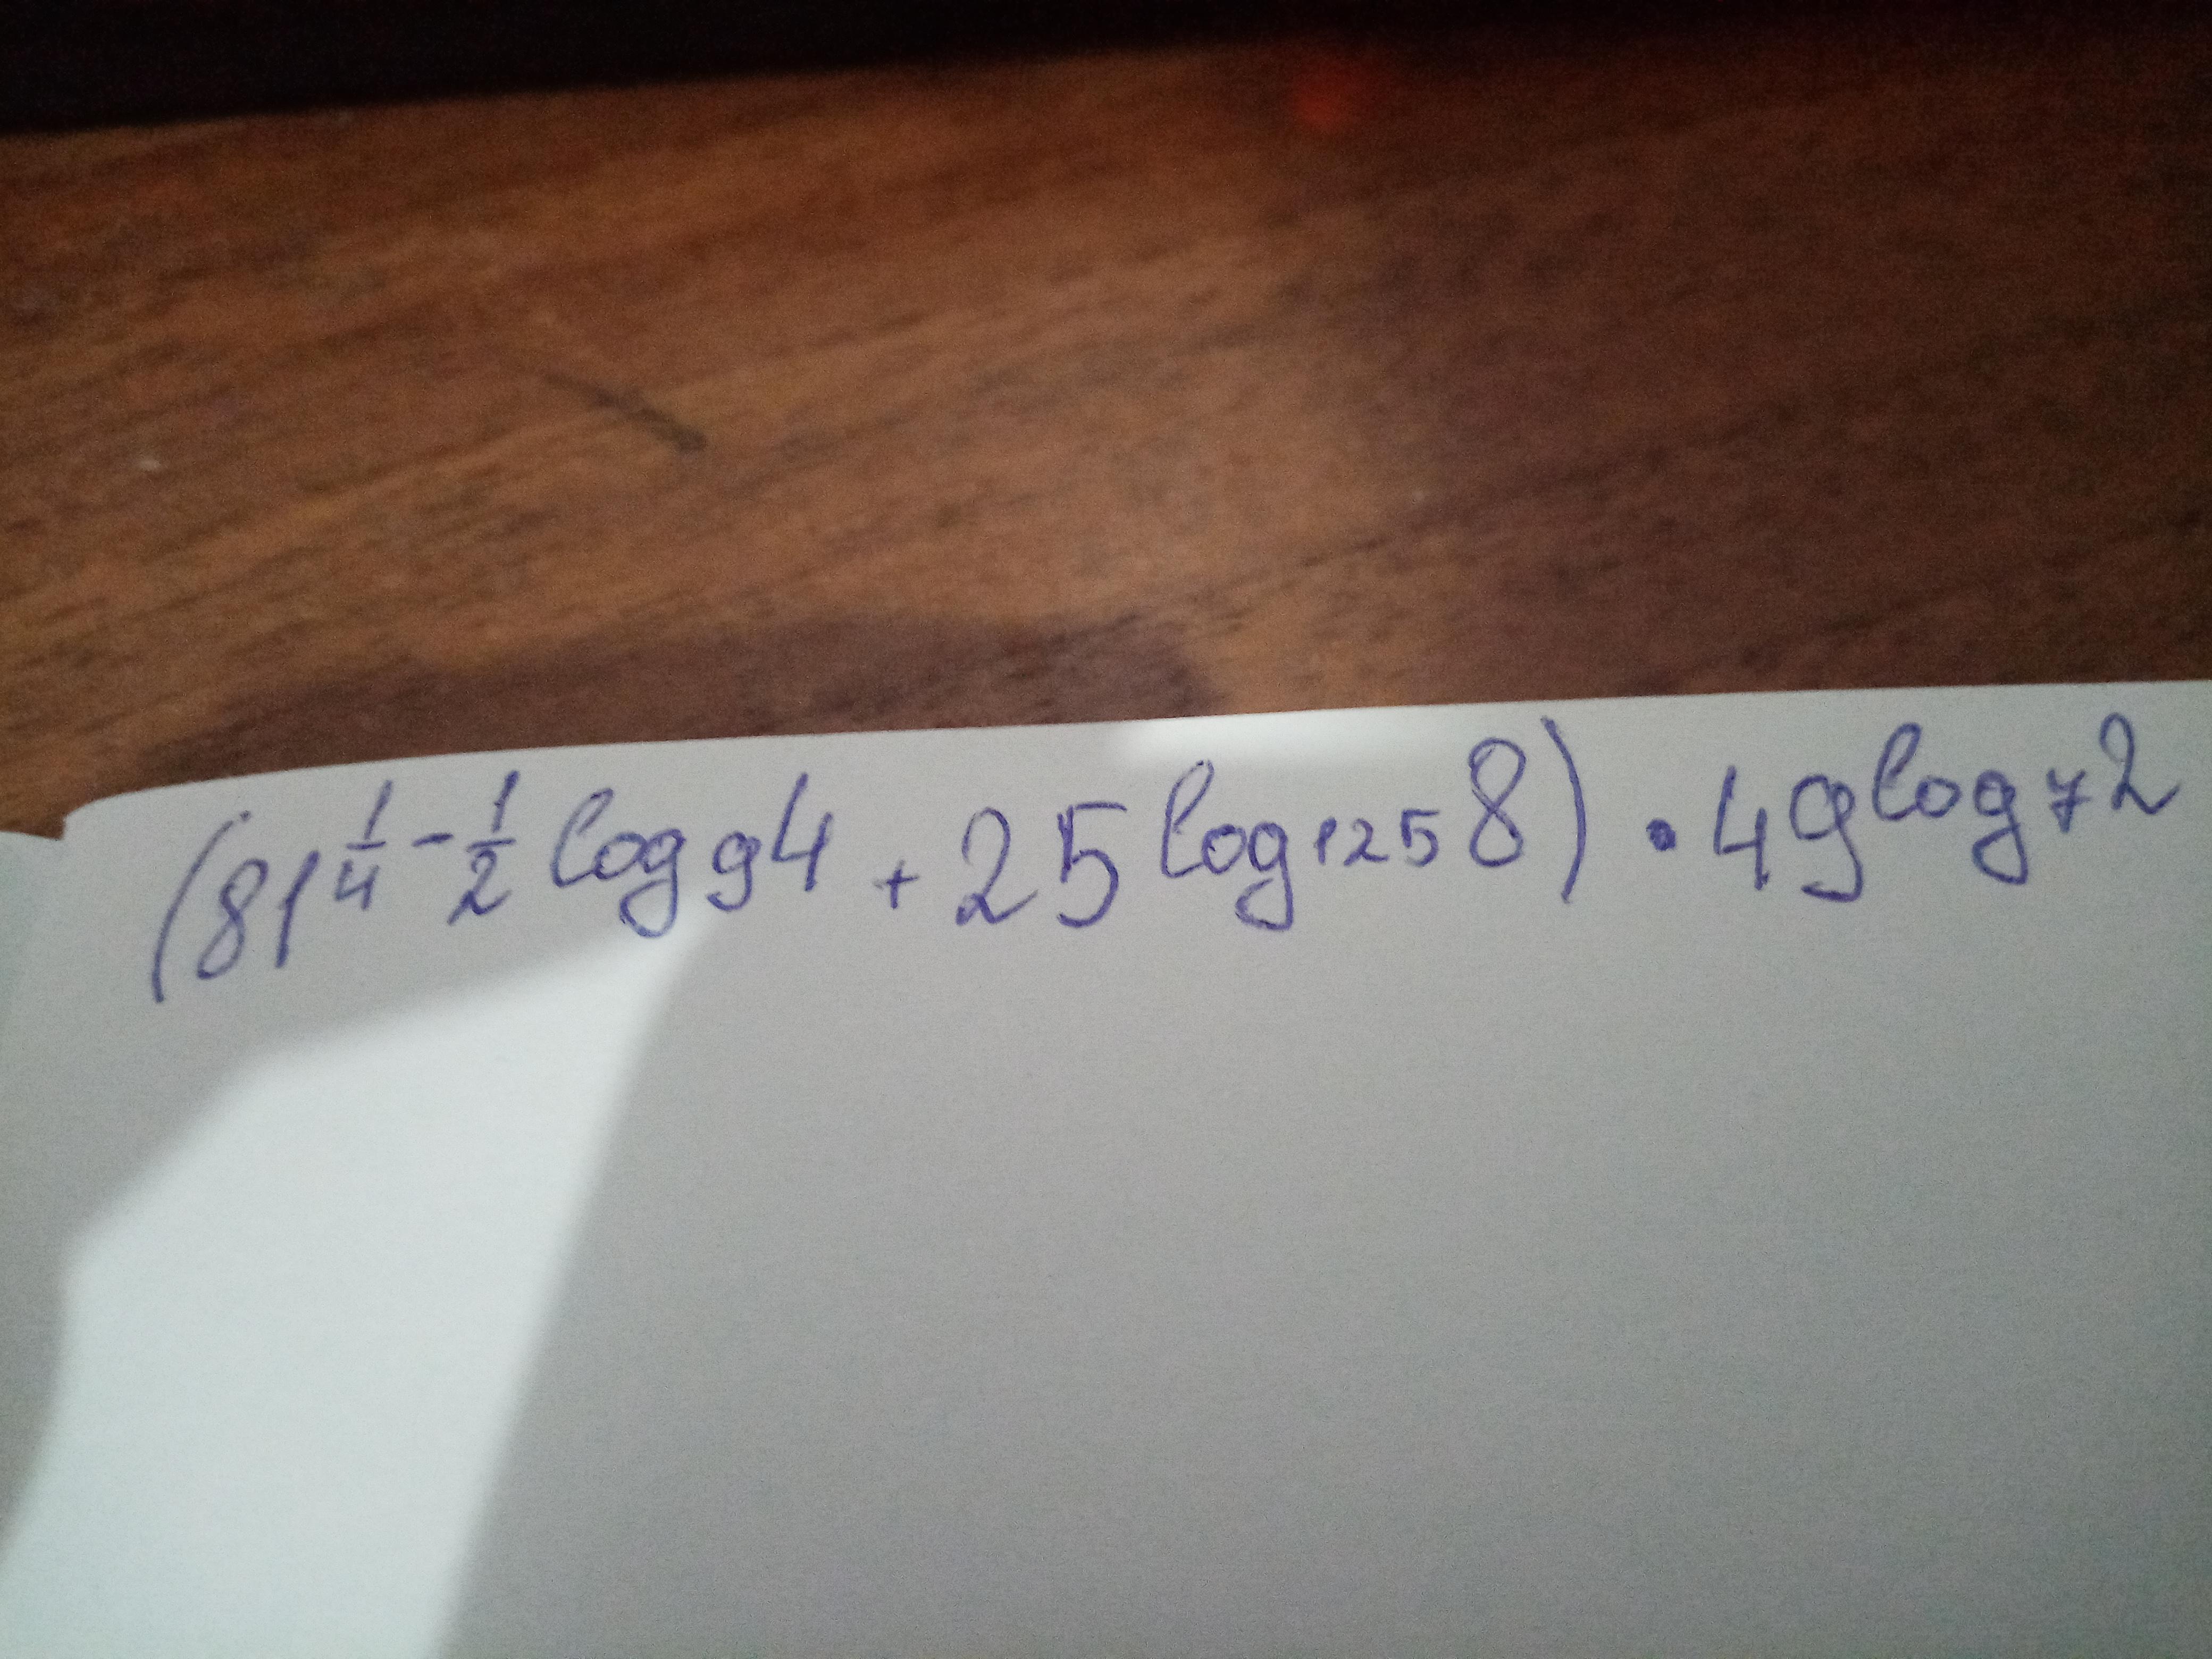 (81^{\frac{1}{4} - \frac{1}{2} \log_9 4} + 25^{\log_{125} 8}) \cdot 49^{\log_7 2}